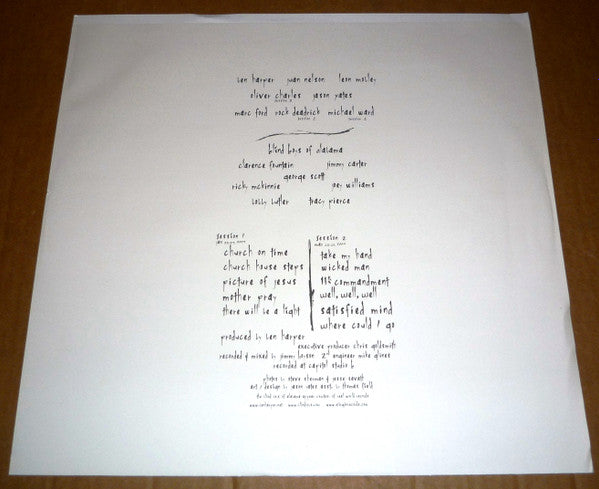 ben harper juan nelson leon mobley
oliver charles jason yates
session 2
marc ford rock deadrick michael ward
session 2 session 2
blind boys of alabama
clarence fountain jimmy carter
george scott
ricky mckinnie joey williams
bobby butler tracy pierce
session 1 session 2
church on time take my hand
church house steps wicked man
picture of jesus 11th commandment
mother pray well, well, well
there will be a light satisfied mind
where could i go
produced by ben harper
executive producer chris goldsmith
recorded & mixed by jimmy hoyson 2nd engineer mike glines
recorded at capitol studio b
photos by steve sherman & jesse
art & design by jason yates asst. by thomas field
the blind boys of alabama appear courtesy of real world records
www.benharper.net www.virginrecords.com